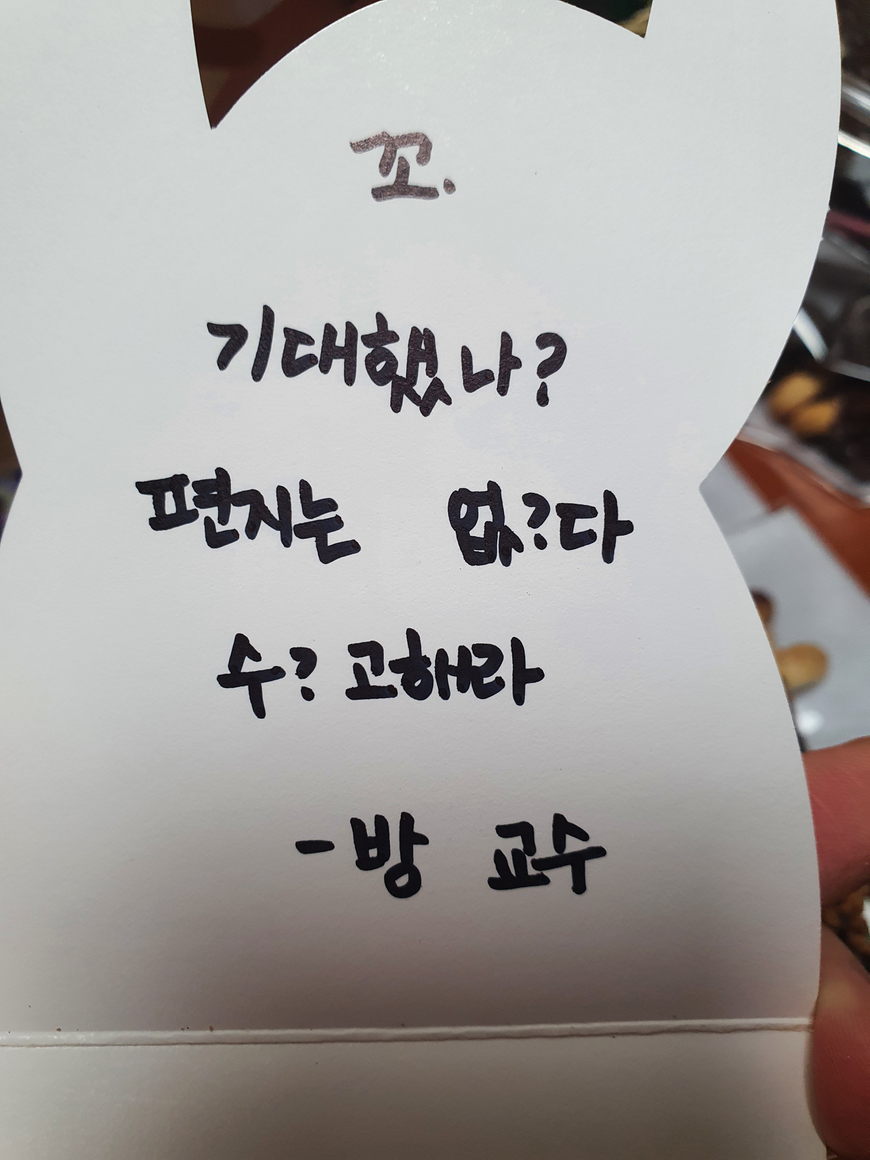 꼬.
기대했나?
편지는 없?다
수?고해라
- 방 교수